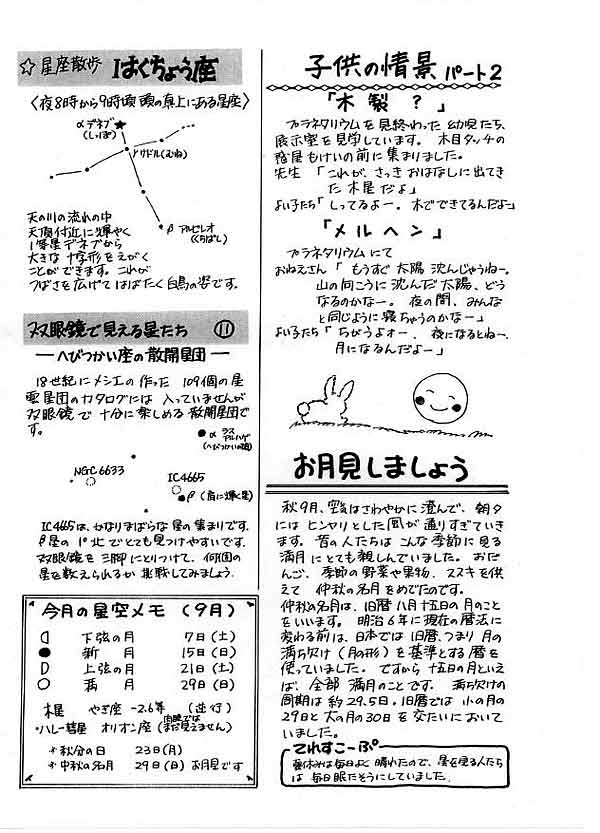 ☆星座散歩 はくちょう座
〈夜8時から9時頃 頭の真上にある星座〉
αデネブ
(しっぽ)
γサドル(むね)
β アルビレオ
(くちばし)
天の川の流れの中
天頂付近に輝やく
1等星デネブから
大きな十字形をえがく
ことができます。これが
つばさを広げてはばたく白鳥の姿です。
双眼鏡で見える星たち ⑪
―へびつかい座の散開星団―
18世紀にメシエの作った 109個の星
雲星団のカタログには入っていませんが
双眼鏡で十分に楽しめる散開星団で
す。
α ラス
アルハゲ
(へびつかいの頭)
NGC6633
IC4665
β (肩に輝く星)
IC4665は、かなりまばらな星の集まりです。
β星の1°北でとても見つけやすいです。
双眼鏡を三脚にとりつけて、何個の
星を数えられるか挑戦してみましょう。
今月の星空メモ (9月)
下弦の月 7日(土)
新月 15日(日)
上弦の月 21日(土)
満月 29日(日)
木星 やぎ座 -2.6等 (逆行)
・ハレー彗星 オリオン座 (肉眼ではまだ見えません)
*秋分の日 23日(月)
*中秋の名月 29日(日) お月見です
子供の情景 パート2
「木製?」
プラネタリウムを見終わった幼児たち、
展示室を見学しています。木目タッチの
惑星もけいの前に集まりました。
先生 「これが、さっきおはなしに出てき
た木星だよ」
よい子たち「しってるよー。木でできてるんだよー」
「メルヘン」
プラネタリウムにて
おねえさん 「もうすぐ太陽沈んじゃうねー。
山の向こうに沈んだ太陽、どう
なるのかなー。夜の間、みんな
と同じように寝ちゃうのかなー」
よい子たち「ちがうよオー。夜になるとねー、
月になるんだよー」
お月見しましょう
秋9月、空気はさわやかに澄んで、朝夕
にはヒンヤリとした風が通りすぎていき
ます。昔の人たちはこんな季節に見る
満月にとても親しんでいました。おだ
んご、季節の野菜や果物、ススキを供
えて仲秋の名月をめでたのです。
仲秋の名月は、旧暦八月十五日の月のこと
をいいます。明治6年に現在の暦法に
変わる前は、日本では旧暦、つまり月の
満ち欠け(月の形)を基準とする暦を
使っていました。ですから十五日の月といえ
ば、全部満月のことです。満ち欠けの
周期は約29.5日。旧暦では小の月の
29日と大の月の30日を交たいにおいて
いました。
てれすこーぷ
夏休みは毎日よく晴れたので、星を見る人たち
は毎日眠たそうにしていました。